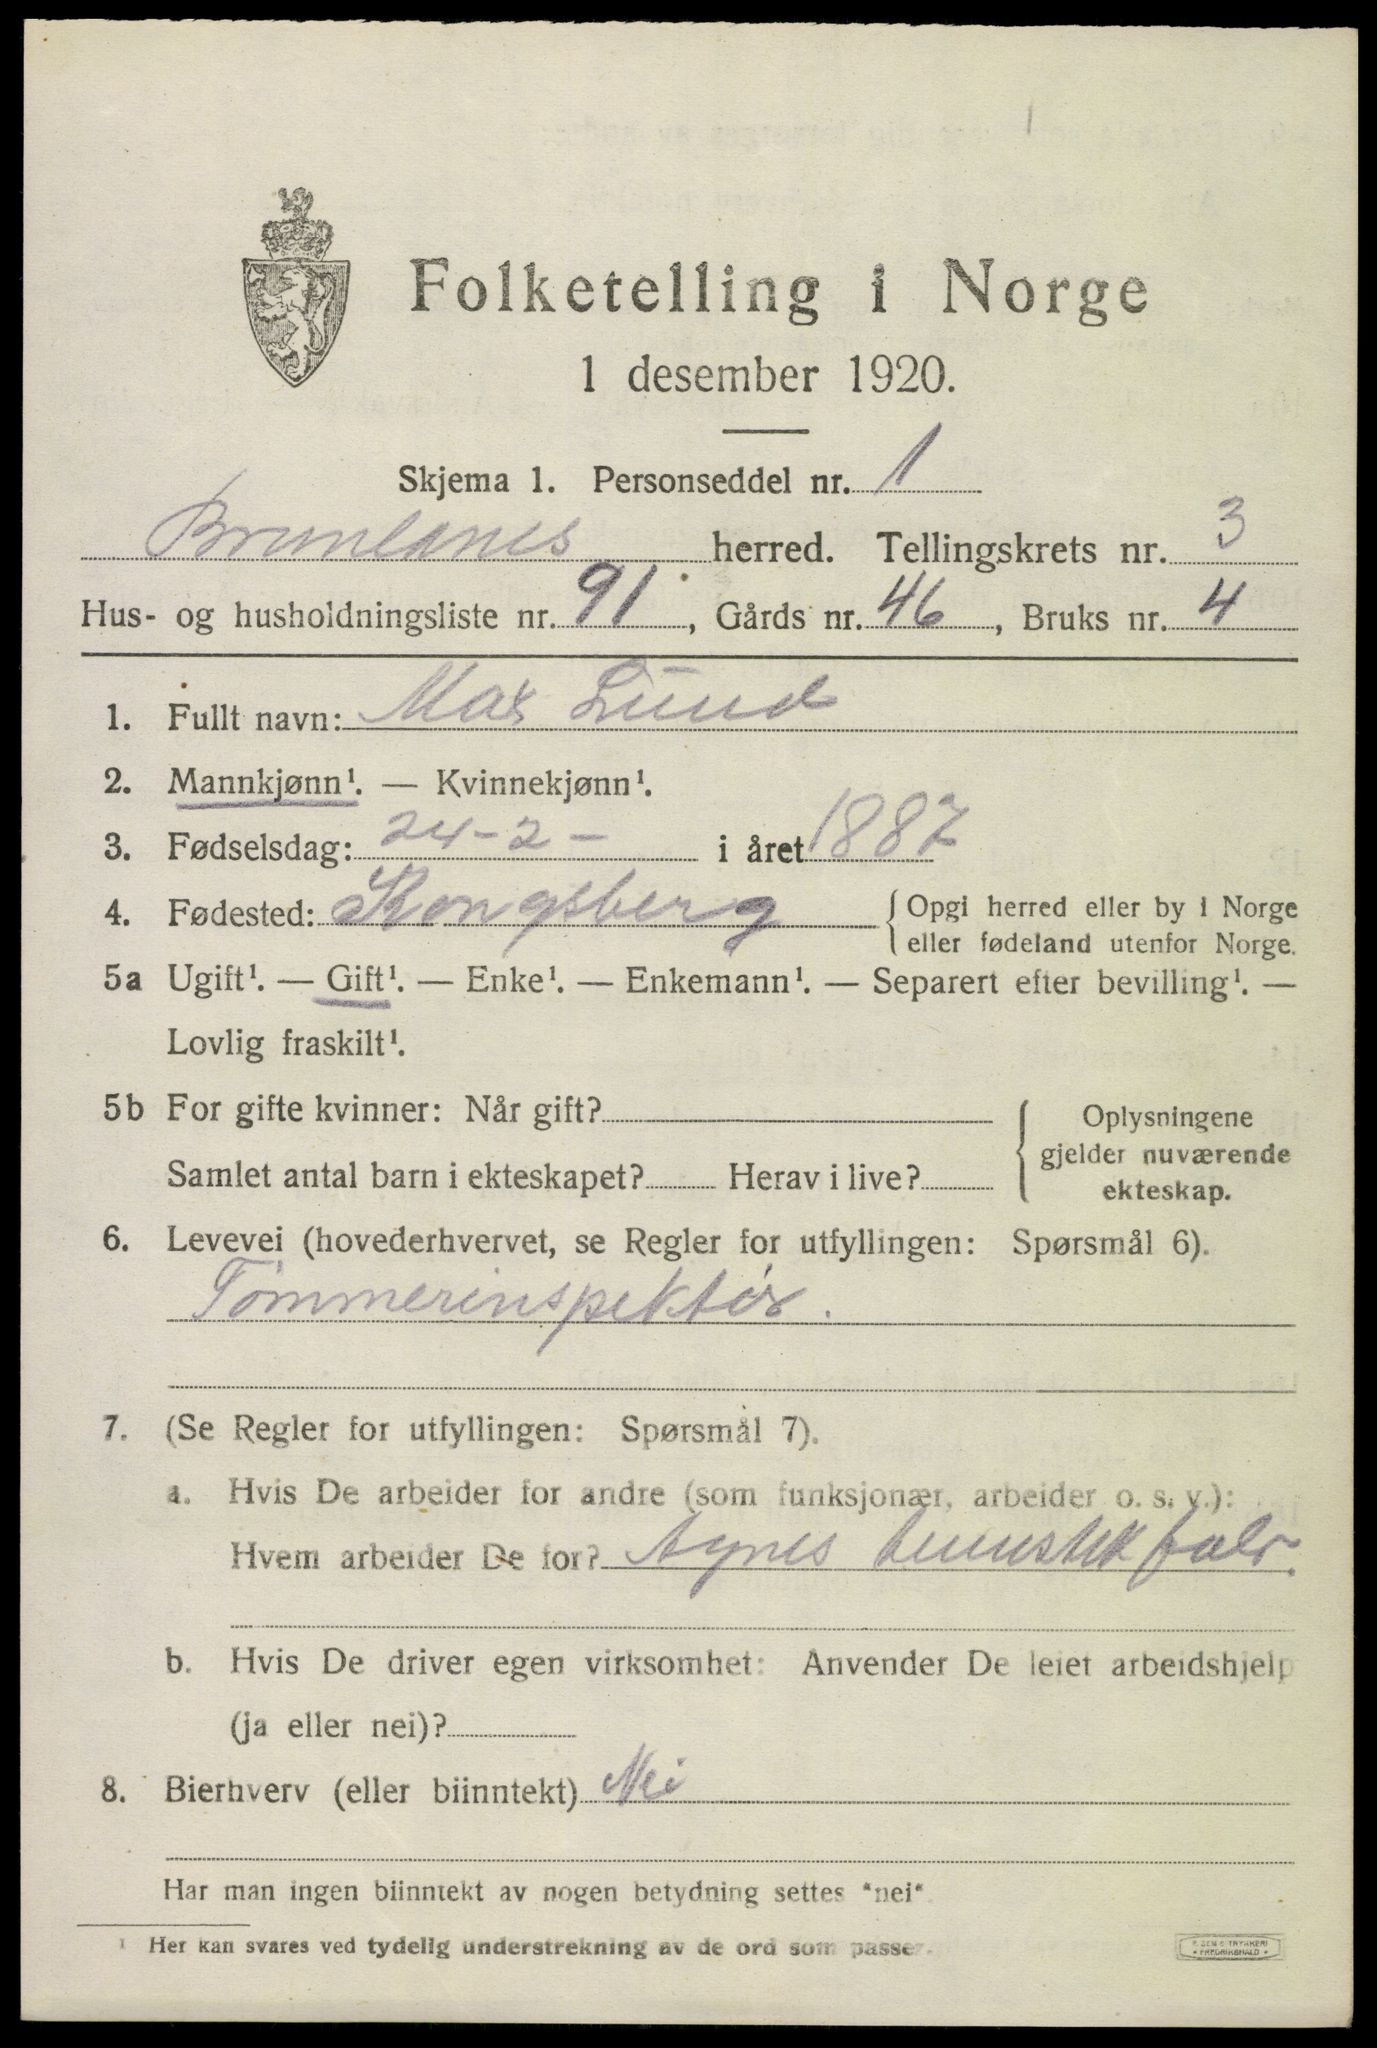 Folketelling i Norge
1 desember 1920.
Skjema 1. Personseddel nr. 1
Brunlanes herred. Tellingskrets nr. 3
Hus- og husholdningsliste nr. 91, Gårds nr. 46, Bruks nr. 4
1. Fullt navn: Max Lund
2. Mannkjønn¹. — Kvinnekjønn¹.
3. Fødselsdag: 24-2- i året 1887
4. Fødested: Kongsberg { Opgi herred eller by i Norge
eller fødeland utenfor Norge.
5a Ugift¹. — Gift¹. — Enke¹. — Enkemann¹. — Separert efter bevilling¹. —
Lovlig fraskilt¹.
5b For gifte kvinner: Når gift?
Samlet antal barn i ekteskapet? Herav i live?
{ Oplysningene
gjelder nuværende
ekteskap.
6. Levevei (hovederhvervet, se Regler for utfyllingen: Spørsmål 6).
Tømmerinspektør.
7. (Se Regler for utfyllingen: Spørsmål 7).
a. Hvis De arbeider for andre (som funksjonær, arbeider o. s. v.):
Hvem arbeider De for? Agnes
b. Hvis De driver egen virksomhet: Anvender De leiet arbeidshjelp
(ja eller nei)?
8. Bierhverv (eller biinntekt) Nei
Har man ingen biinntekt av nogen betydning settes "nei"
¹ Her kan svares ved tydelig understrekning av de ord som passer.
TRYKKERI
FREDRIKSHALD